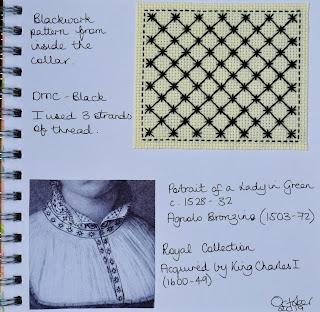 Blackwork
pattern from
inside the
collar.
DMC - Black
I used 3 strands
of thread.
Portrait of a Lady in Green
c. 1528 - 32
Agnolo Bronzino (1503-72)
Royal Collection
Acquired by King Charles I
(1600-49)
October
2019